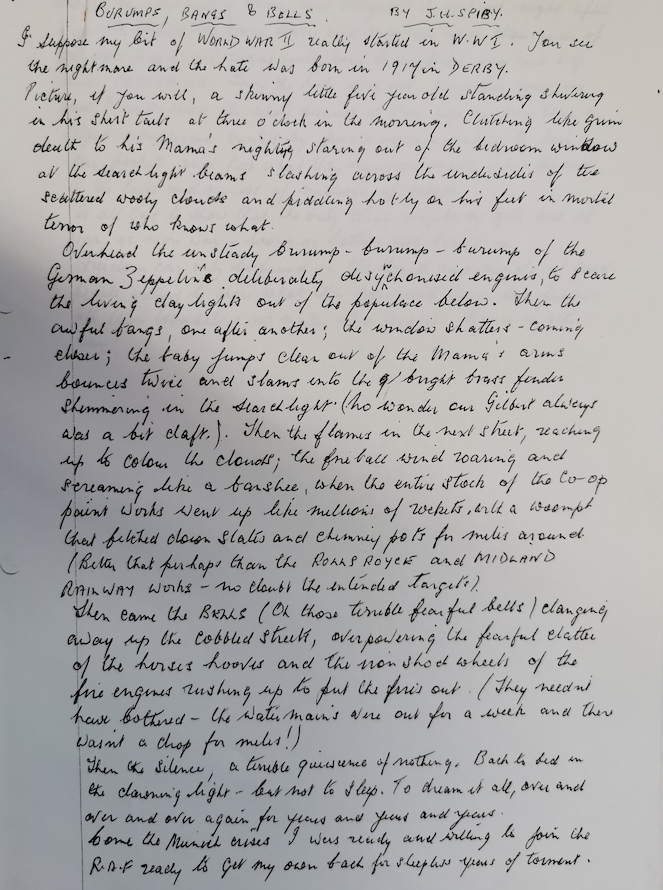 BURUMPS, BANGS & BELLS. BY J.H.SPIBY.
I suppose my bit of WORLD WAR II really started in W.W I. You see
the nightmare and the hate was born in 1917 in DERBY.
Picture, if you will, a skinny little five year old standing shivering
in his shirt tails at three o'clock in the morning. Clutching like grim
death to his Mama's nighty staring out of the bedroom window
at the searchlight beams slashing across the undersides of the
scattered wooly clouds and piddling hotly on his feet in mortal
terror of who knows what.
Overhead the unsteady burump - burump - burump of the
German Zeppelin's deliberately desynchonised engines, to scare
the living daylights out of the populace below. Then the
awful bangs, one after another; the window shatters - coming
closer; the baby jumps clean out of the Mama's arms
bounces twice and slams into the bright brass fender
shimmering in the searchlight. (No wonder our Gilbert always
was a bit daft.). Then the flames in the next street, reaching
up to colour the clouds; the fireball wind roaring and
screaming like a banshee, when the entire stock of the Co-op
paint works went up like millions of rockets, with a woompf
that fetched down slates and chimney pots for miles around
(Better that perhaps than the ROLLS ROYCE and MIDLAND
RAILWAY WORKS - no doubt the intended targets).
Then came the BELLS (Oh those terrible fearful bells) clanging
away up the cobbled streets, overpowering the fearful clatter
of the horses hooves and the iron shod wheels of the
fire engines rushing up to put the fires out. (They needn't
have bothered - the water mains were out for a week and there
wasn't a drop for miles!)
Then the silence, a terrible quiescence of nothing. Back to bed in
the dawning light - but not to sleep. To dream it all, over and
over and over again for years and years and years.
Come the Munich crisis I was ready and willing to join the
R.A.F ready to get my own back for sleepless years of torment.